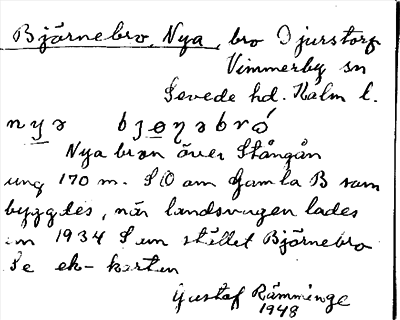 Björnebro, Nya, bro Djurstorp
Vimmerby sn
Sevede hd. Kalm l.
nyə bjønəbró
Nya bron över Stångån
ung 170 m. SO om Gamla B som
byggdes, när landsvägen lades
om 1934 S om stället Björnebro
Se ek-kartan
Gustaf Rämminge
1948